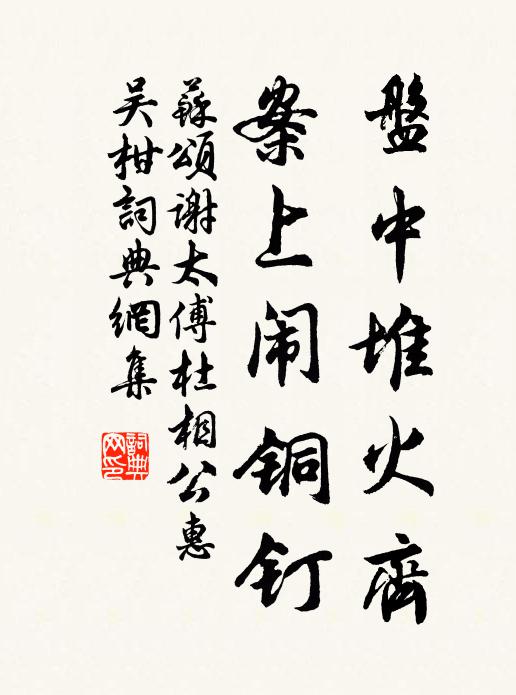 盤中堆火齊
案上闹铜钉
蘇頌謝太傅杜相公惠
吴柑詞典網集
詞典网印